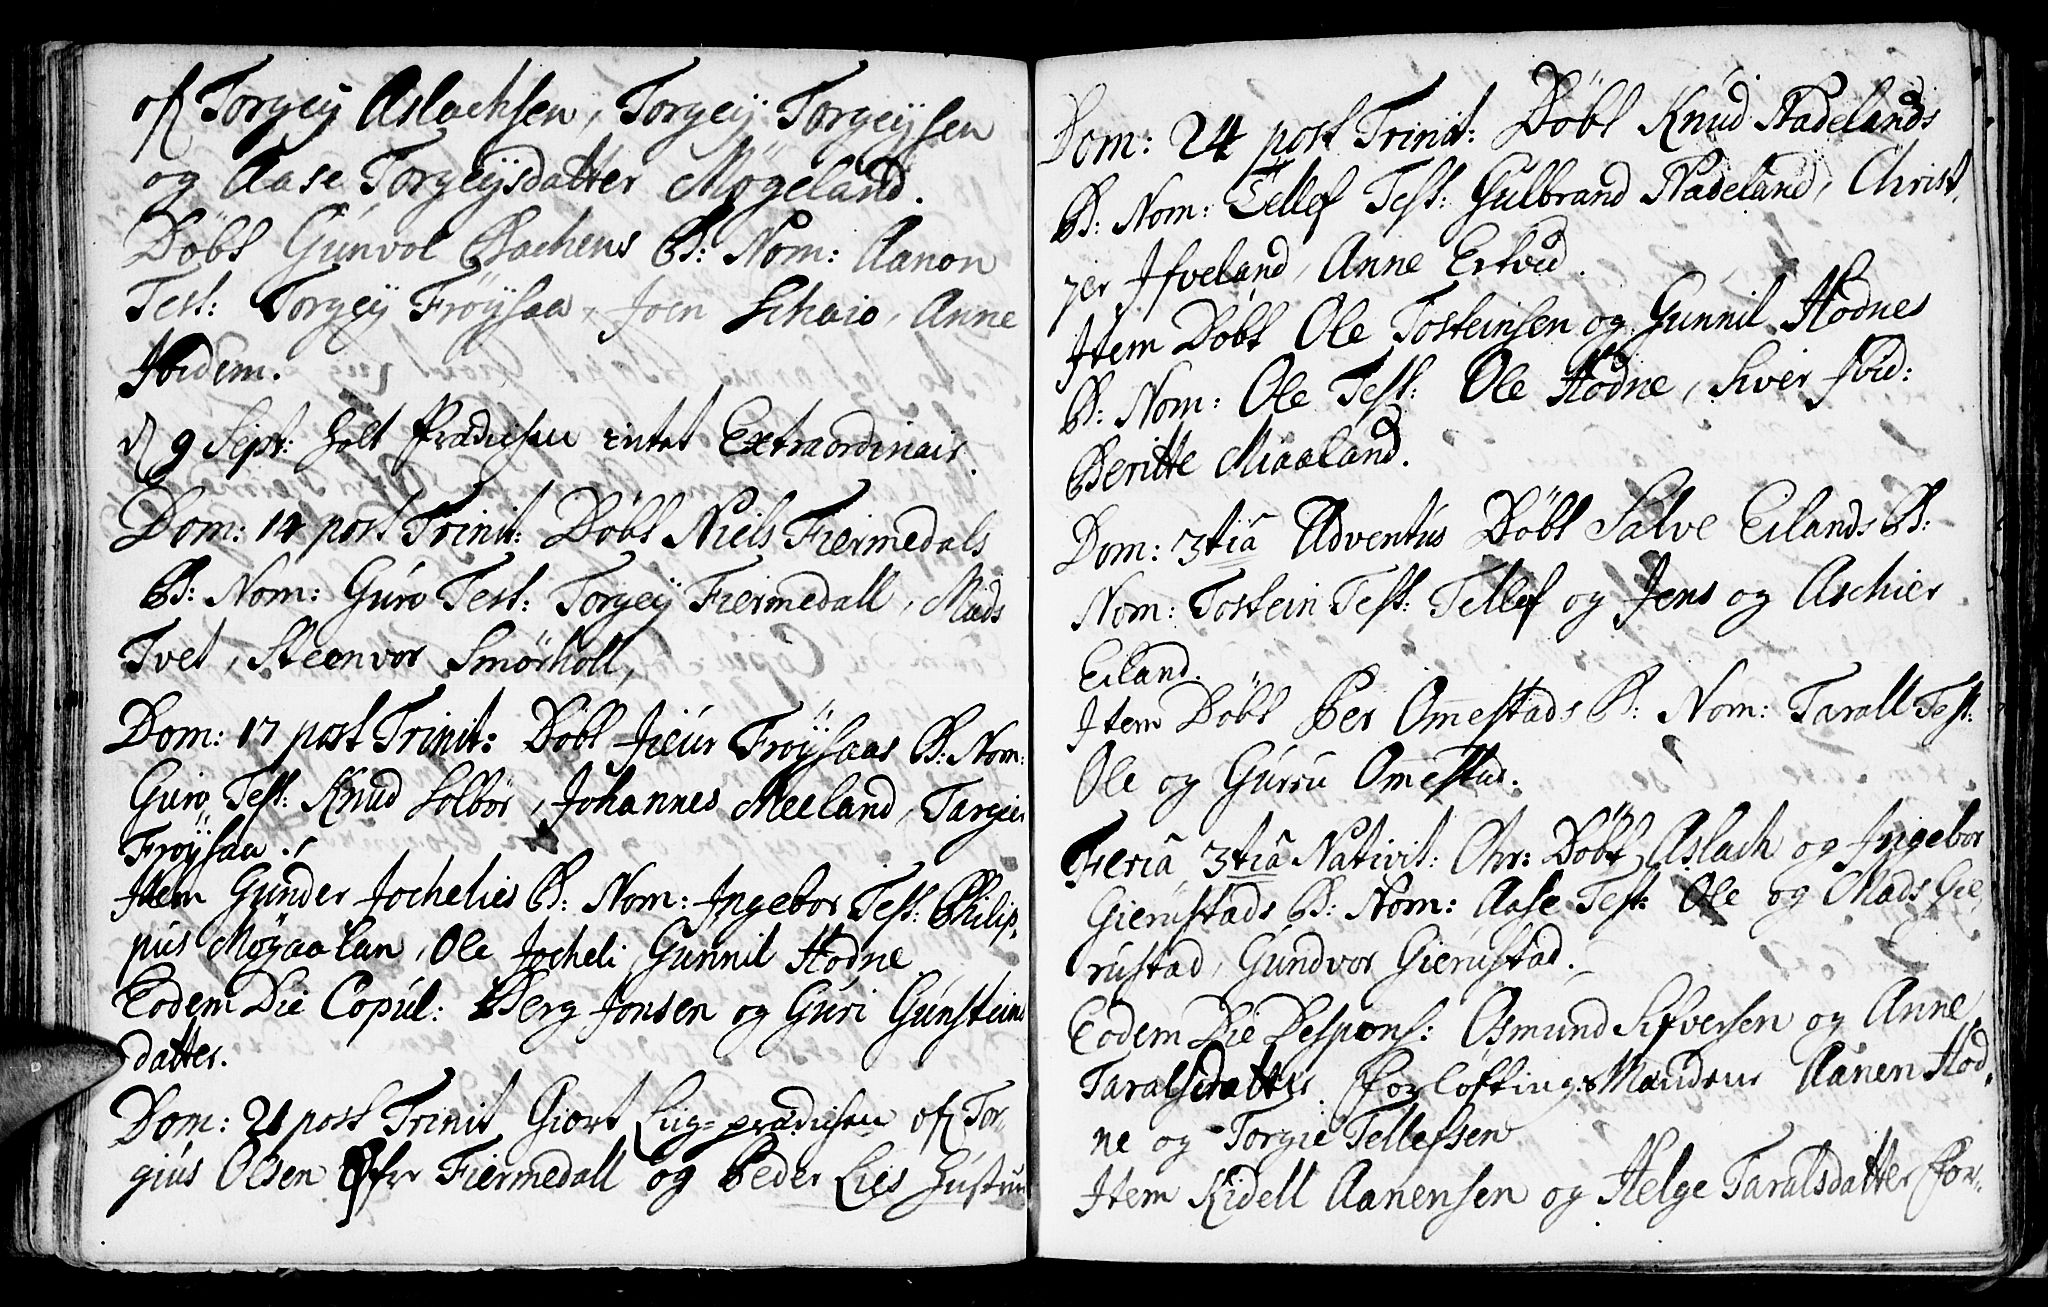 of Torgeÿ Aslachsen, Torgeÿ Torgeÿsen
og Aase Torgeÿsdatter Møgeland.
Döbt Gúnvol Bachens B: Nom: Aanon
Test: Torgeÿ Fröÿsaa, Joen Schaio, Anne
Ibidem.
d 9 Sept: holt Prædichen intet Extraordinair.
Dom: 14 post Trinit: Döbt Niels Fiermedals
B: Nom: Gúro Test: Torgeÿ Fiermedall, Mads
Tvet, Steenvor Smörholl,
Dom: 17 post Trinit: Döbt Fröÿsaas B: Nom:
Gúro, Test: Knud Solbör, Johannes Meeland, Targier
Fröÿsaa.
Item Gunder Jochelies B: Nom: Ingebor Test: Philip-
pus Möÿaalan, Ole Jocheli Gunnil Hodne
Eodem Die Copúl: Berg Jonsen og Gúri Gúnsteins
datter.
Dom: 21 post Trinit Giort Liig-prædichen of Tor-
giús Olsen Fiermedall og Peder Lies Hústru
Dom: 24 post Trinit: Döbt Knúd Nadelands
B: Nom: Tellef Test: Gulbrand Nadeland, Christ.
Ifveland, Anne Ertvid.
Item Döbt Ole Tosteinsen og Gunnil Hodnes
B: Nom: Ole Test: Ole Hodne, Siver Ibid:
Beritte Miaaland.
Dom: 3tiâ Adventús Döbt Salve Eilands B:
Nom: Tostein Test: Tellef og Jens og Aschier
Eiland.
Item Döbt Per Omestads B: Nom: Tarall Test:
Ole og Gúrru Omestad.
Feriâ 3tiâ Nativit: Chr: Döbt Aslach og Ingebor
Gierústads B: Nom: Aase Test: Ole og Mads Gie,
rústad, Gúndvor Gierústad.
Eodem Die Despons: Osmund Sifversen og Anne
Taralsdatter. Forlöftings Mændene Aanen Hod,
ne og Torgie Tellefsen
Item Kidell Aanensen og Helge Taralsdatter For-